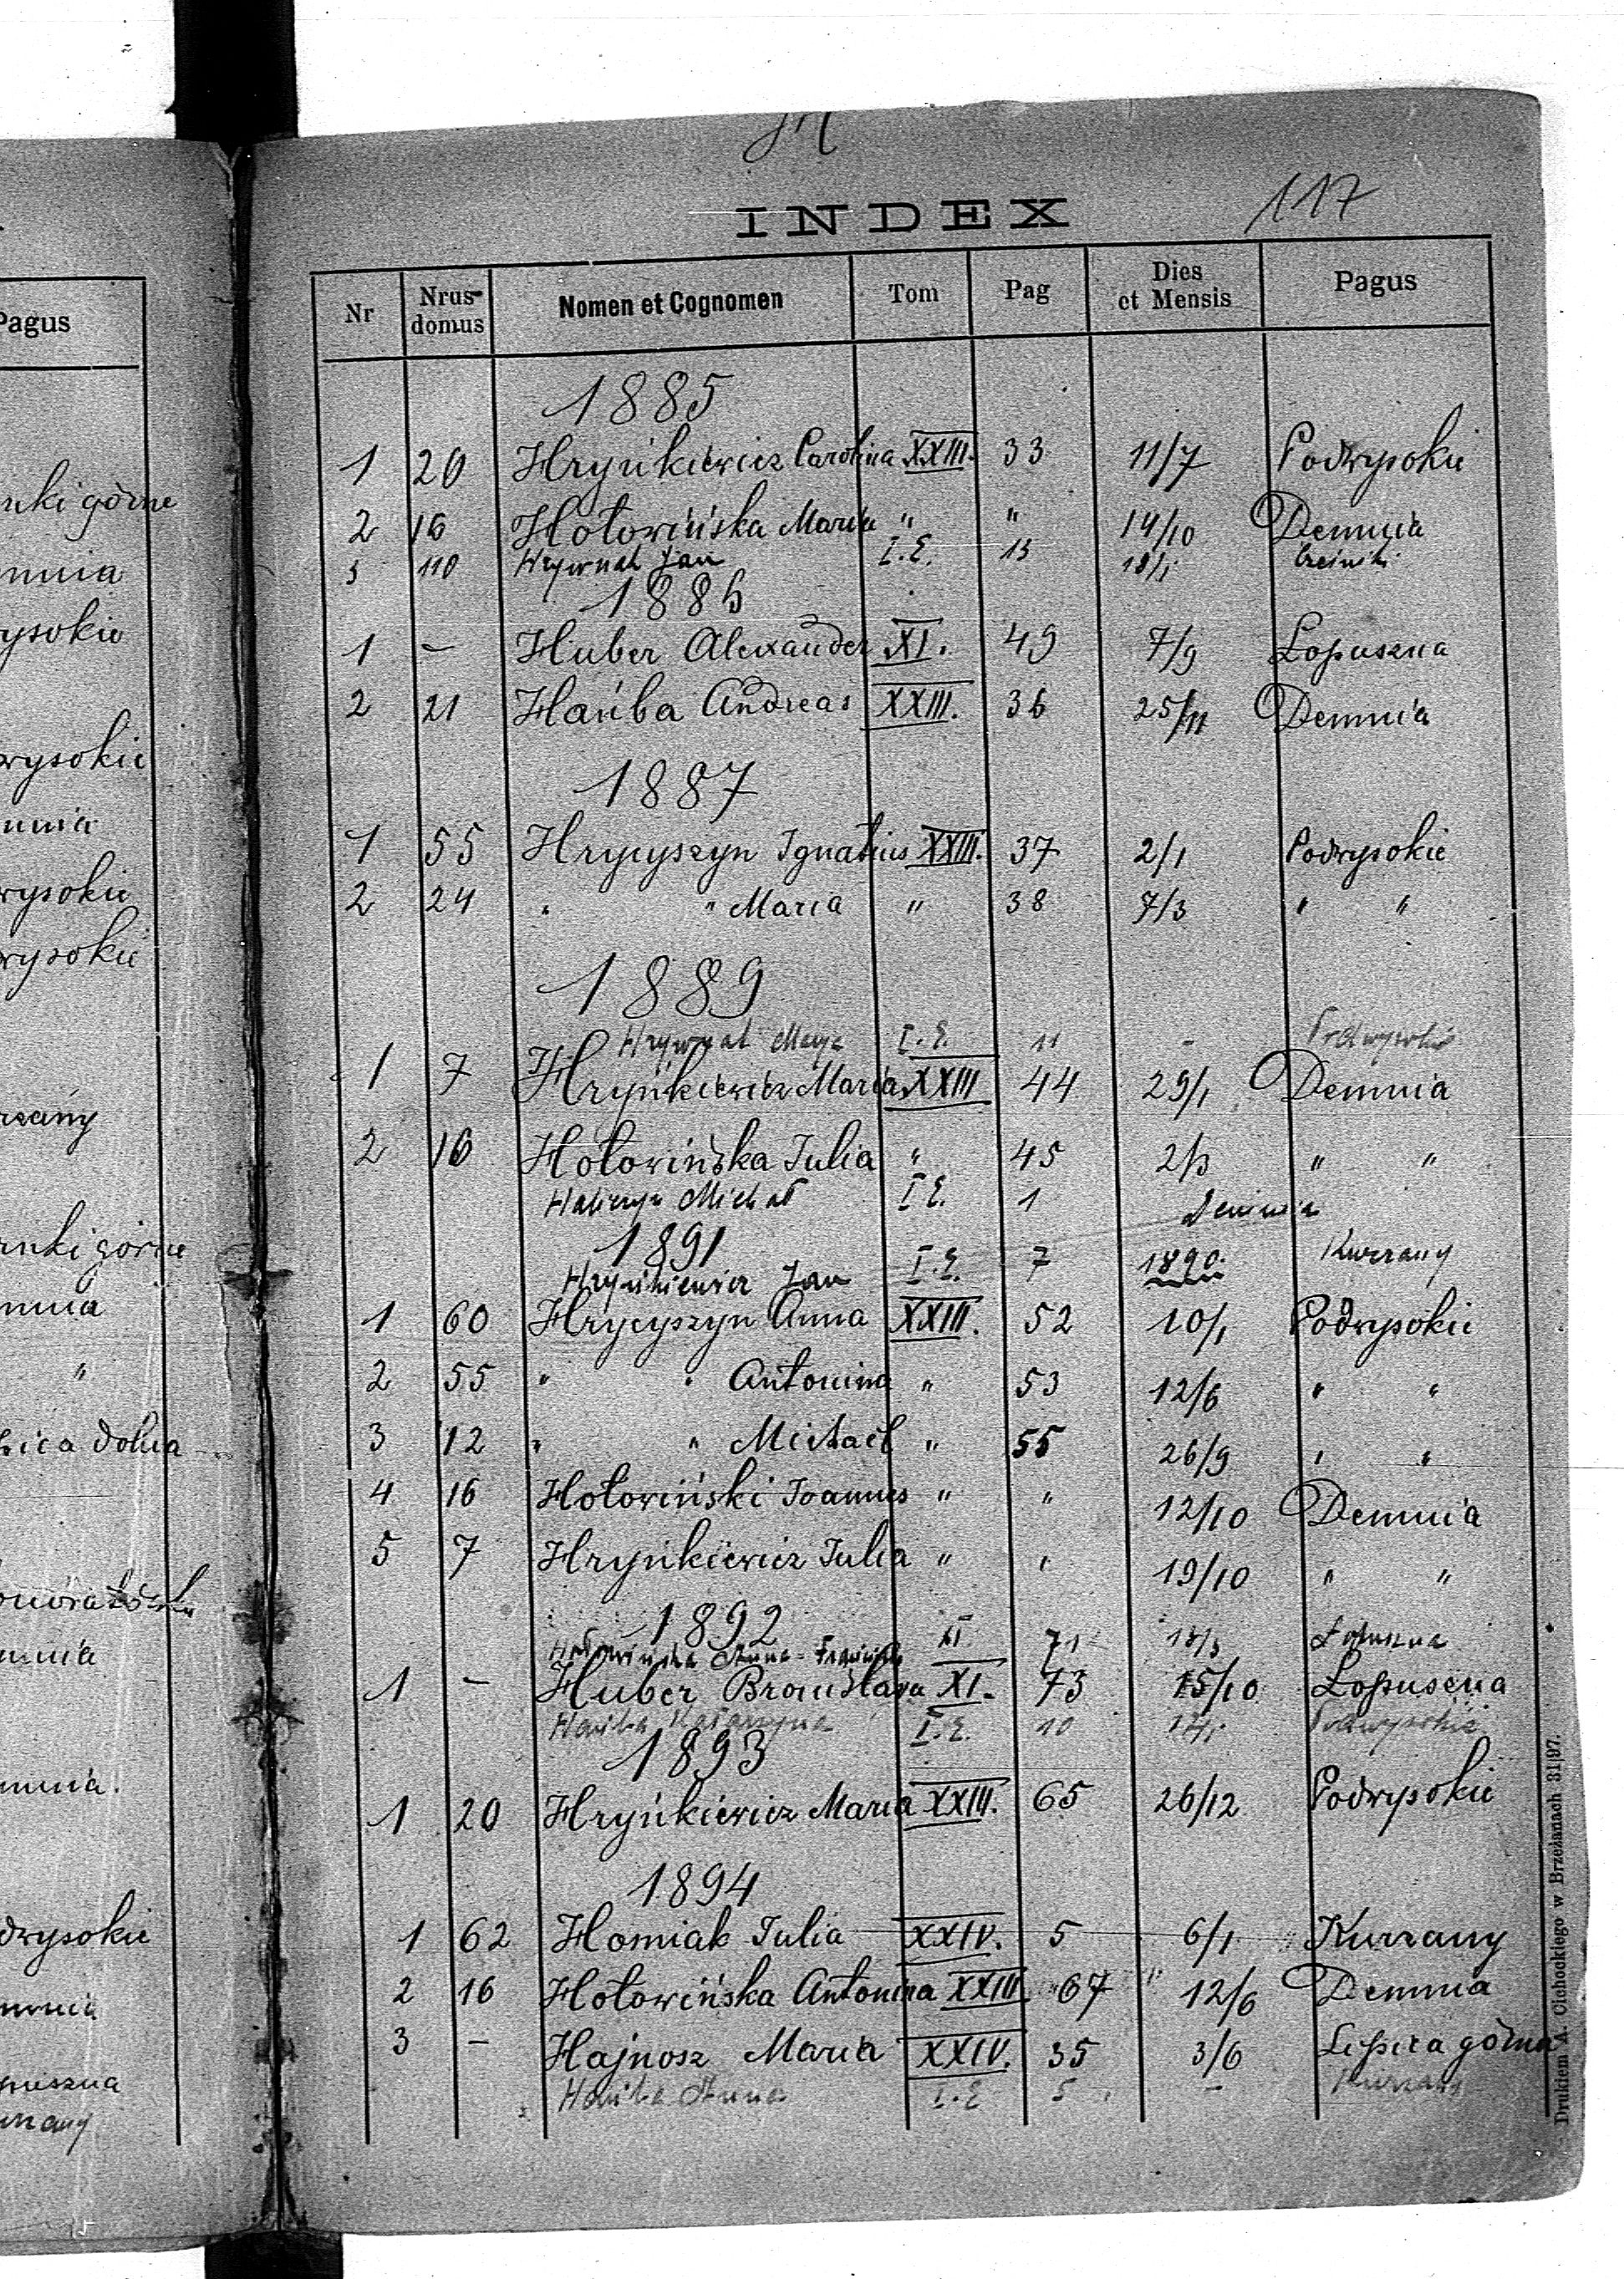 Pagus
nki górne
mnia
ysokie
wysokie
mnia
wysokie
wysokie
nki górne
mnia
"
ica dolna
mnia
mnia.
dwysokie
mnia
puszna
rzany
H
INDEX 117
Nr Nrus domus Nomen et Cognomen Tom Pag Dies et Mensis Pagus
1885
1 20 Hryńkiewicz Carolina XXIII. 33 11/7 Podwysokie
2 16 Hołowińska Maria " " 14/10 Demnia
3 110 Jan I.E. 13 18/1
1886
1 – Huber Alexander XI. 49 7/9 Lopuszna
2 21 Hańba Andreas XXIII. 36 25/11 Demnia
1887
1 55 Hrycyszyn Ignatius XXIII. 37 2/1 Podwysokie
2 24 " " Maria " 38 7/3 " "
1889
Hrywnak I.E. 11 – Podwysokie
1 7 Hryńkiewicz Maria XXIII 44 29/1 Demnia
2 16 Hołowińska Julia " 45 2/3 " "
Michał I E. 1 Demnia
1891
Hryńkiewicz Jan I.E. 7 1890. Kurzany
1 60 Hrycyszyn Anna XXIII. 52 10/1 Podwysokie
2 55 " " Antonina " 53 12/6 " "
3 12 " " Michael " 55 26/9 " "
4 16 Hołowiński Joannes " " 12/10 Demnia
5 7 Hryńkiewicz Julia " " 19/10 " "
1892
Hołowińska Anna XI 71 18/3 Łopuszna
1 – Huber Bronislava XI. 73 15/10 Lopuszna
Hańba Katarzyna I.E. 10 Podwysokie
1893
1 20 Hryńkiewicz Maria XXIII. 65 26/12 Podwysokie
1894
1 62 Homiak Julia XXIV. 5 6/1 Kurzany
2 16 Hołowińska Antonina XXIII 67 12/6 Demnia
3 – Hajnosz Maria XXIV. 35 3/6 Lipica górna
Hańba Anna I.E 5 – Kurzany
Drukiem A. Cichockiego w Brzeżanach 31|97.